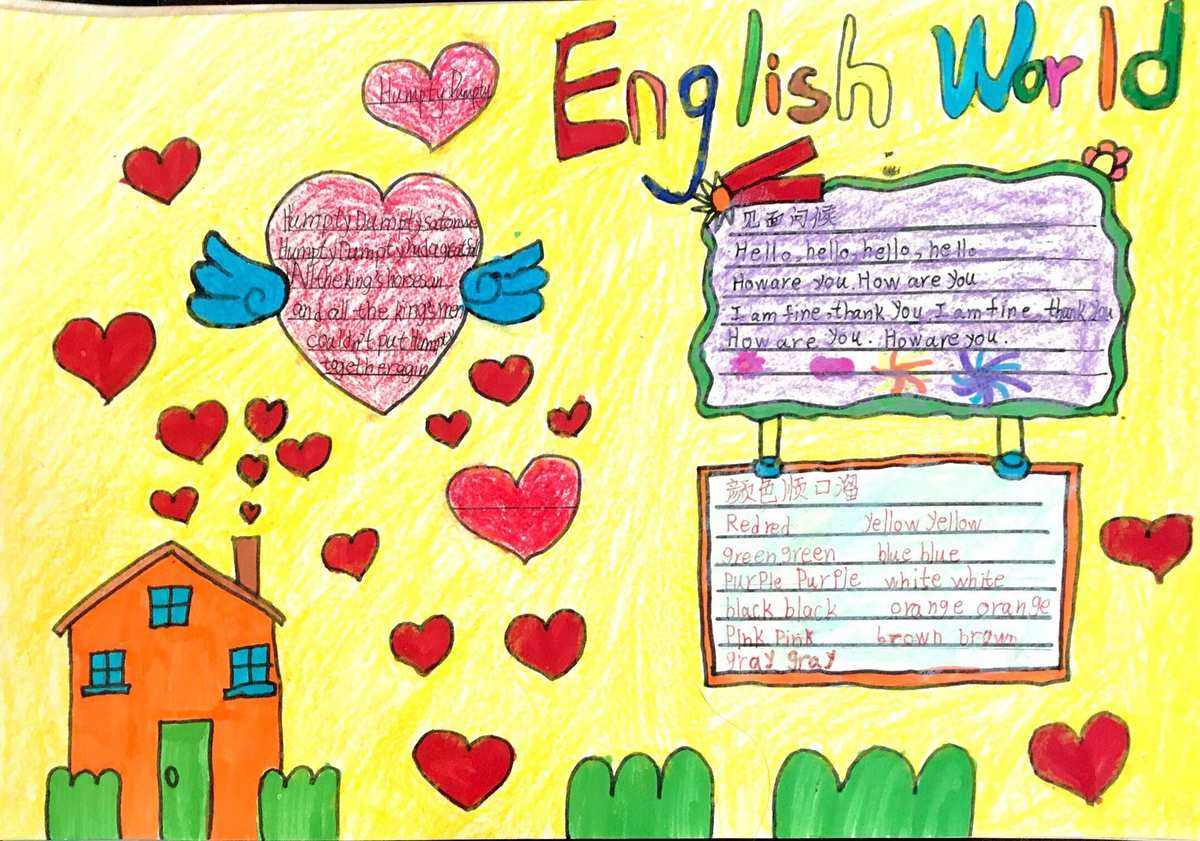 English World
Humpty Dumpty
Humpty Dumpty sat on
Humpty Dumpty had a great fall
All the king's horses an
and all the king's men
couldn't put Humpty
together agin
见面问候
Hello, hello, hello, hello
How are you. How are you
I am fine, thank you I am fine thank you
How are you. How are you.
颜色顺口溜
Red red yellow yellow
green green blue blue
Purple Purple white white
black black orange orange
Pink Pink brown brown
gray gray